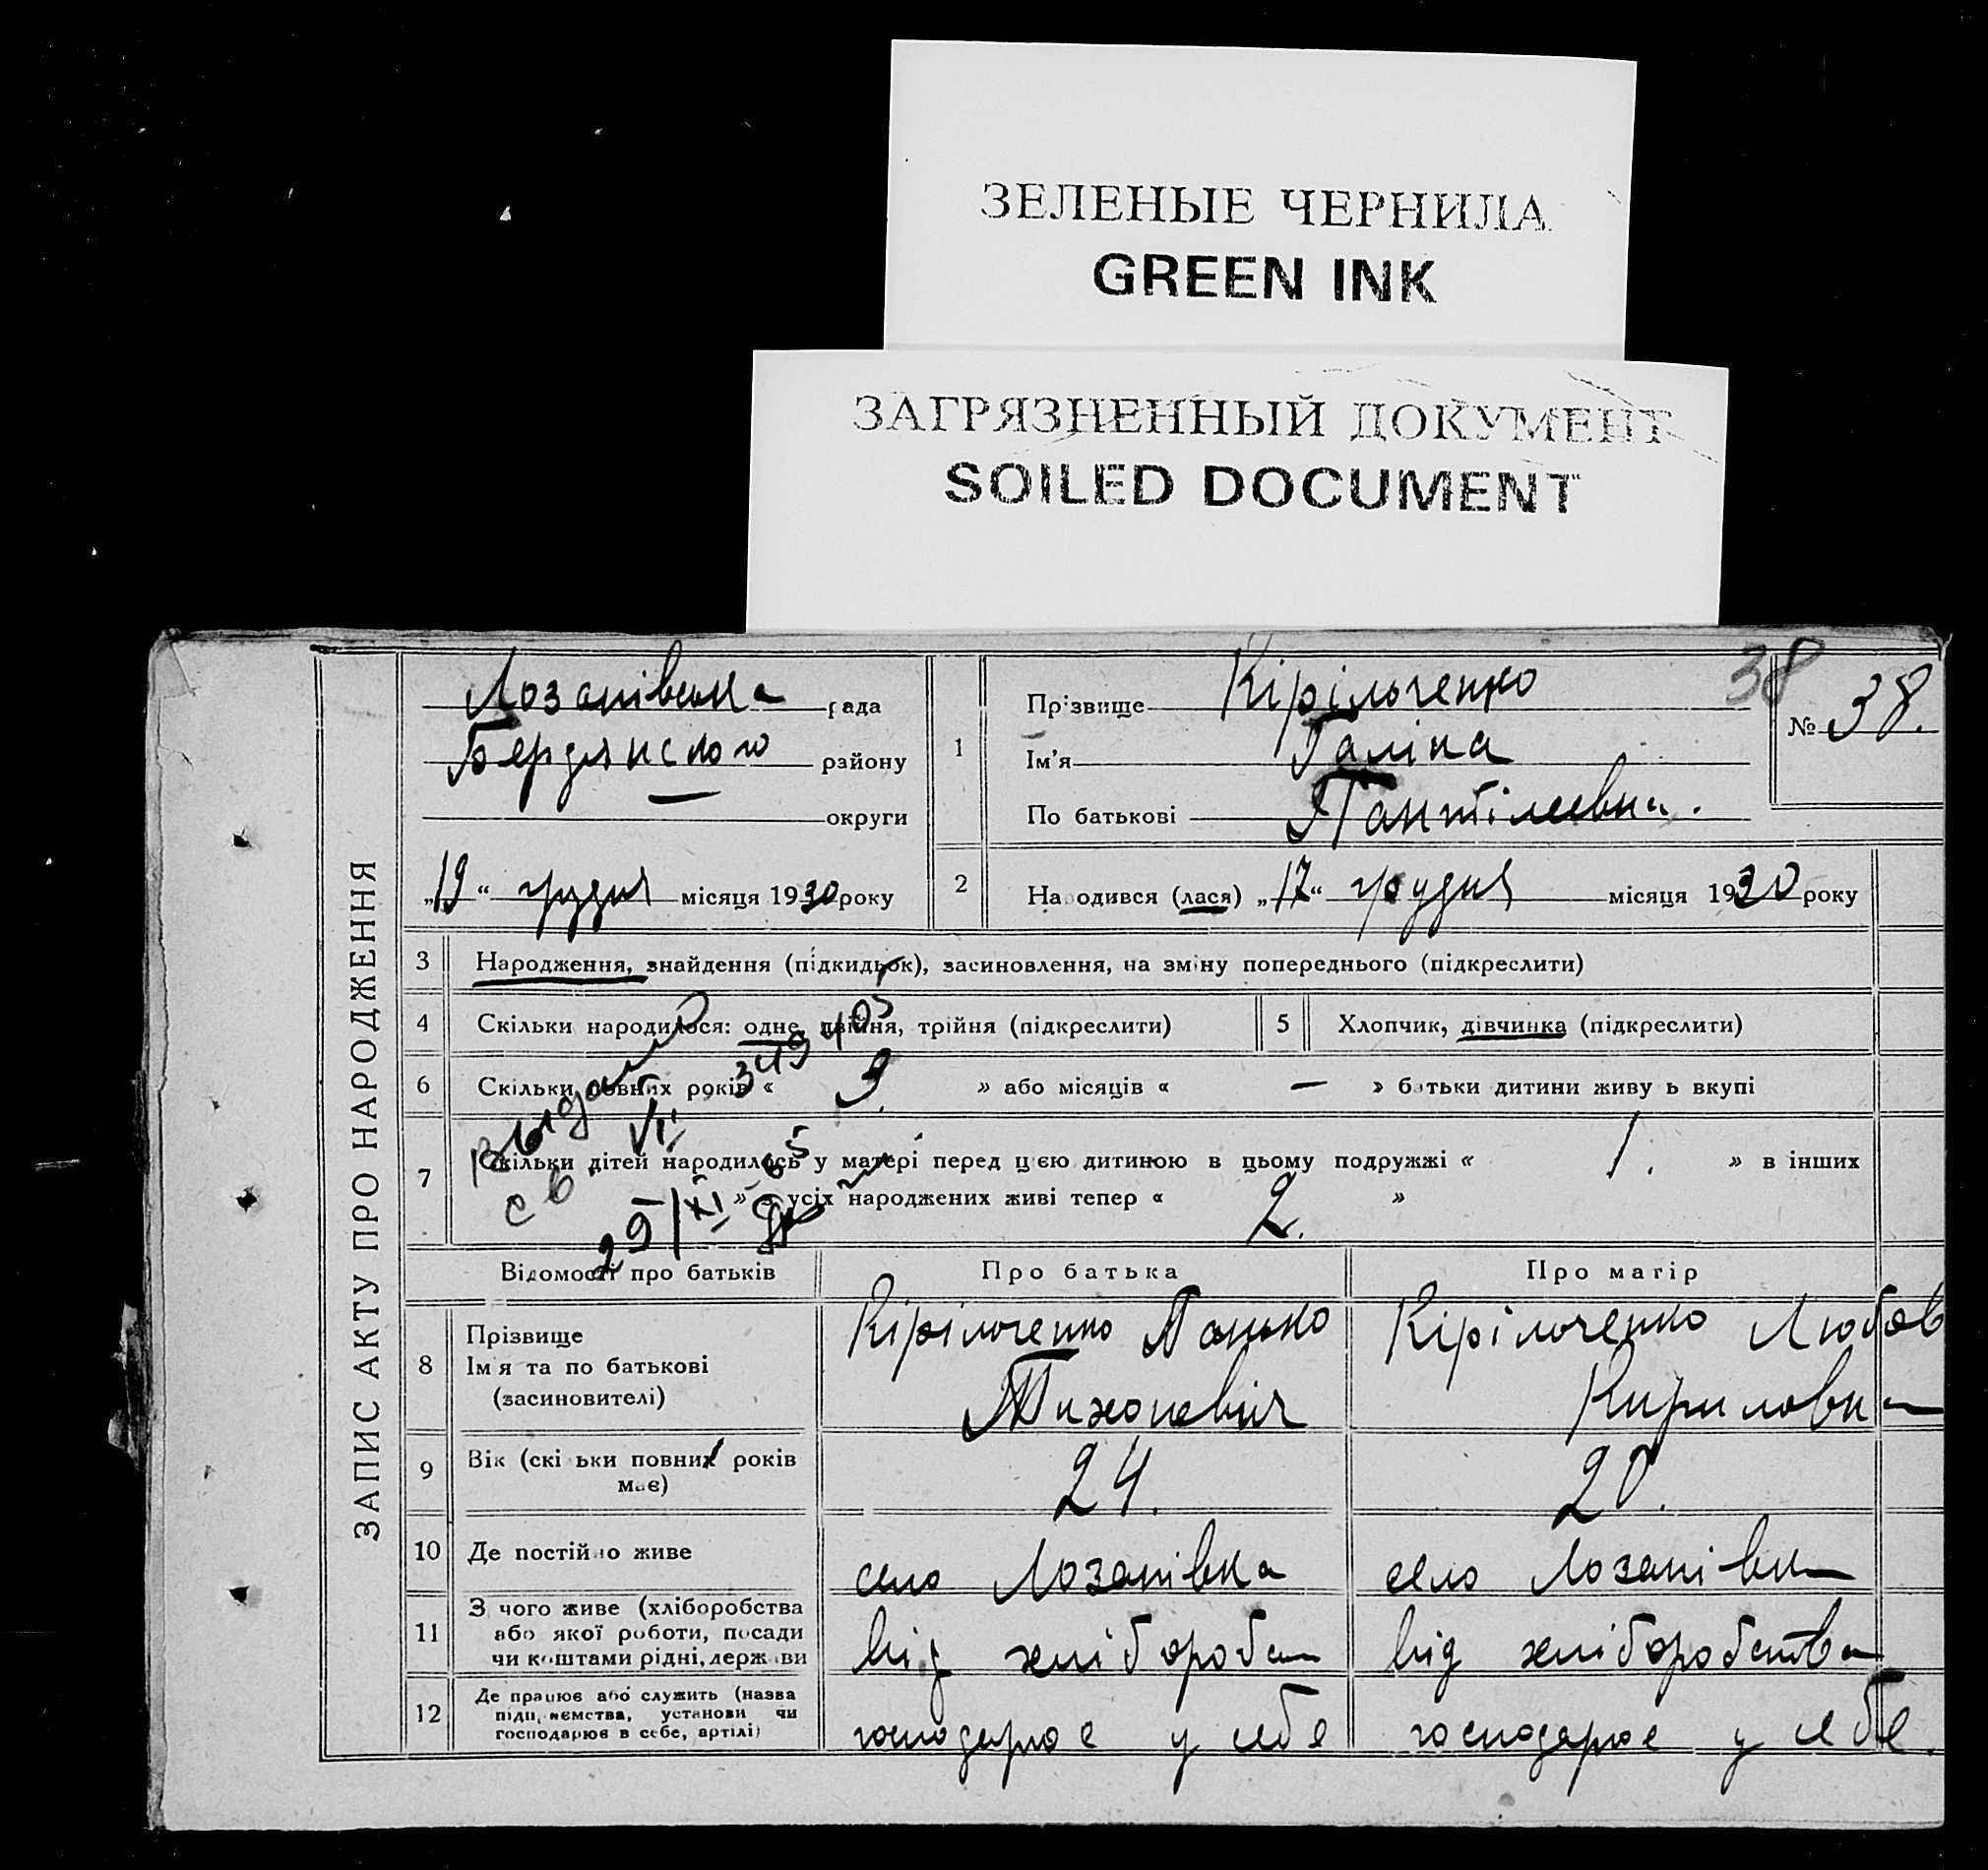 ЗЕЛЕНЫЕ ЧЕРНИЛА
GREEN INK
ЗАГРЯЗНЕННЫЙ ДОКУМЕНТ
SOILED DOCUMENT
ЗАПИС АКТУ ПРО НАРОДЖЕННЯ
рада
Бердянского району
округи
„19“ грудня місяця 1930 року
1
Прізвище Кірільченко
Ім'я Галіна
По батькові Пантілеевна.
38
№ 38.
2 Народився (лася) „17“ грудня місяця 1930 року
3 Народження, знайдення (підкидьок), засиновлення, на зміну попереднього (підкреслити)
4 Скільки народилося: одне, двійня, трійня (підкреслити)
5 Хлопчик, дівчинка (підкреслити)
6 Скільки повних років « 3. » або місяців « — » батьки дитини живуть вкупі
7 Скільки дітей народилось у матері перед цією дитиною в цьому подружжі « 1. » в інших
» з усіх народжених живі тепер « 2. »
выдано
св VI
349405
29/XI
Відомості про батьків Про батька Про матір
8 Прізвище
Ім'я та по батькові
(засиновителі)
Кірільченко Панько
Тихоневич
Кірільченко Любов
Кириловна
9 Вік (скільки повних років
має)
24. 20.
10 Де постійно живе
село Лозанівка село Лозанівка
11 З чого живе (хліборобства
або якої роботи, посади
чи коштами рідні, держави
від хліборобства від хліборобства
12 Де працює або служить (назва
підприємства, установи чи
господарює в себе, артілі)
господарює у себе господарює у себе.